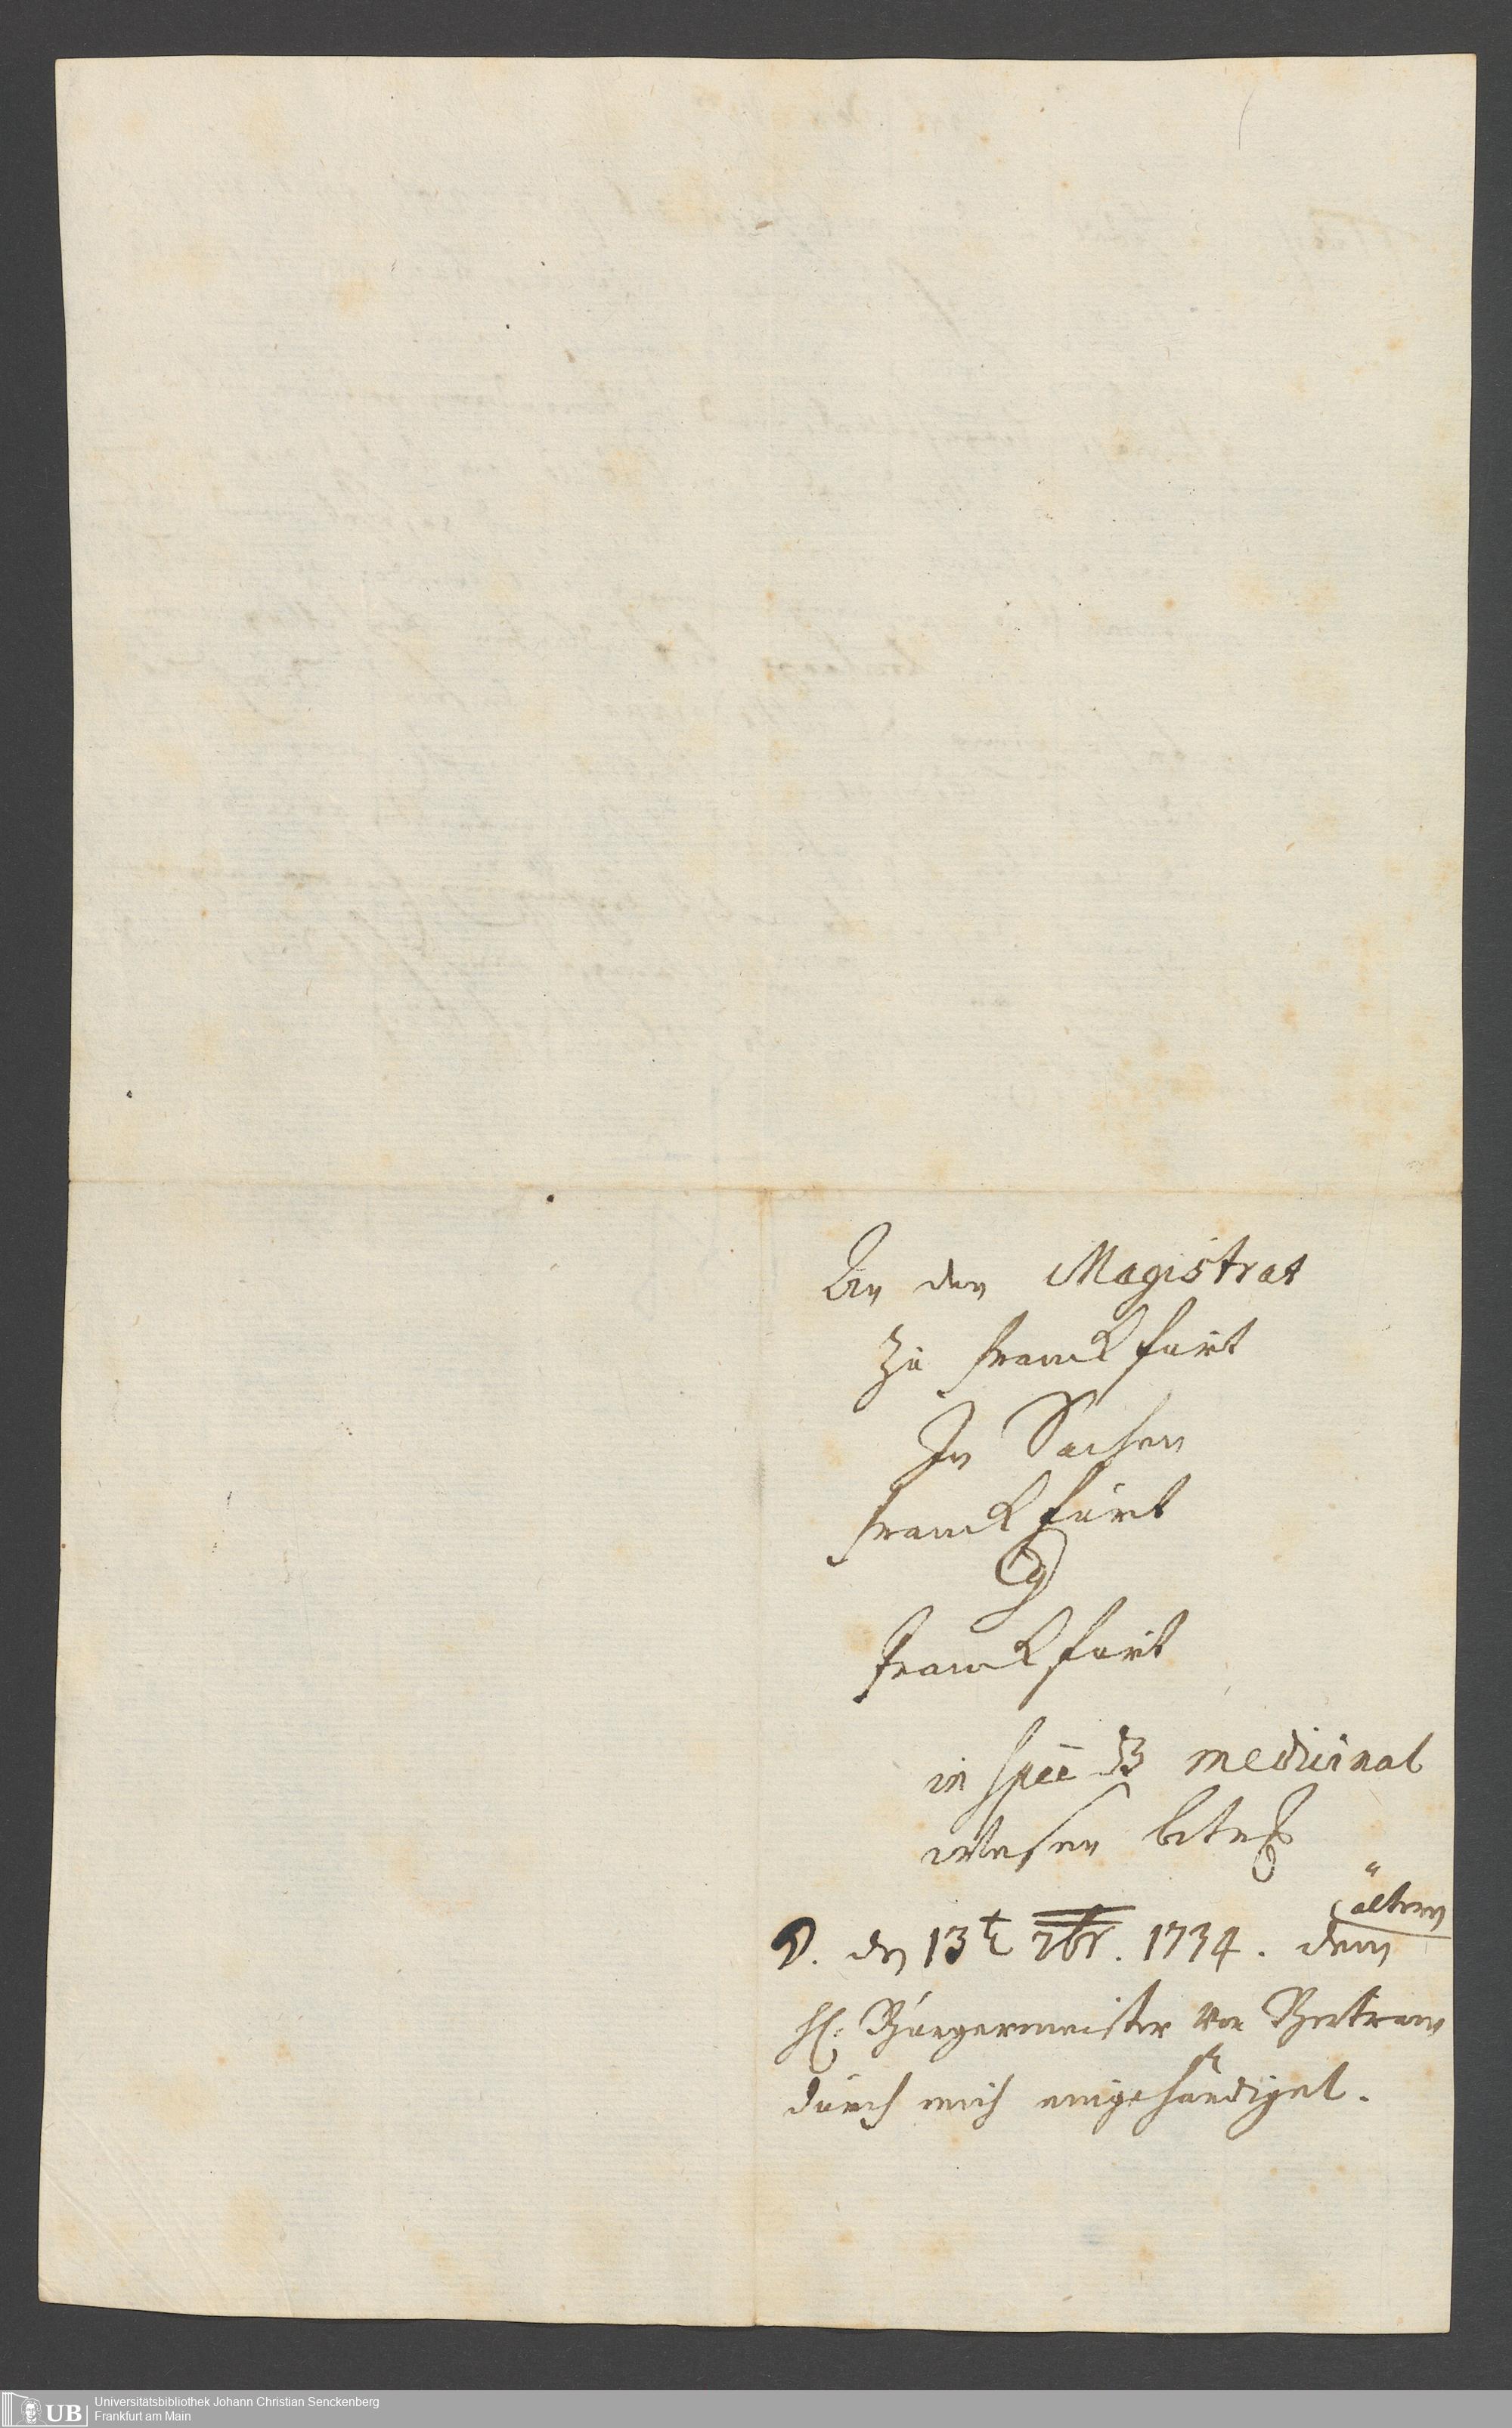 An den Magistrat
zu Franckfurt
In Sachen
Franckfurt
Franckfurt
in spēe medicinal
wesen betrf
D. den 13t 7br. 1734. dem
ältern
H: Bürgermeister von Bertram
durch mich eingehändiget.
UB
Universitätsbibliothek Johann Christian Senckenberg
Frankfurt am Main